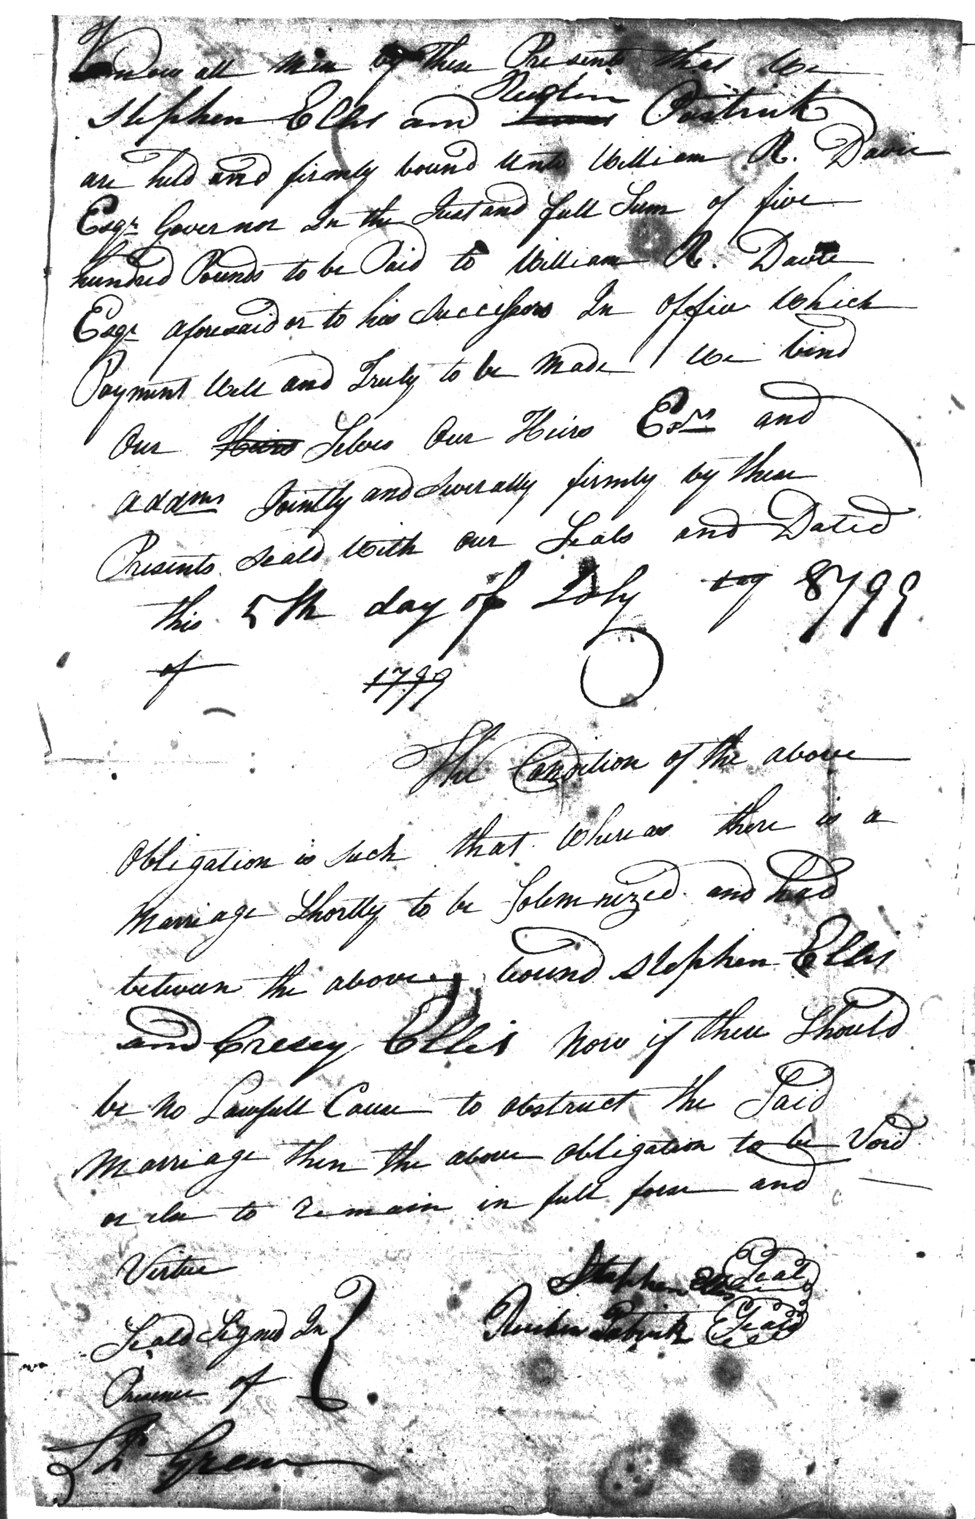 Know all Men by these Presents that We
Stephen Ellis and Reuben Pattrick
are held and firmly bound Unto William R. Davie
Esqr. Governor In the Just and full Sum of five
hundred Pounds to be Paid to William R. Davie
Esqr aforesaid or to his Successors In Office Which
Payment Well and Truly to be Made We bind
Our Heirs Selves Our Heirs Exrs and
addmrs Jointly and Severally firmly by these
Presents Seald With our Seals and Dated
this 5th day of July 1799
of 1799
The Condition of the above
Obligation is Such that Whereas there is a
Marriage Shortly to be Solemnized and had
between the above bound Stephen Ellis
and Cresey Ellis Now if there Should
be No Lawfull Cause to obstruct the Said
Marriage then the above obligation to be Void
or else to Remain in full force and
Virtue
Stephen Ellis Seal
Seald Signd In
Reuben Patrick Seal
Presence of
Green